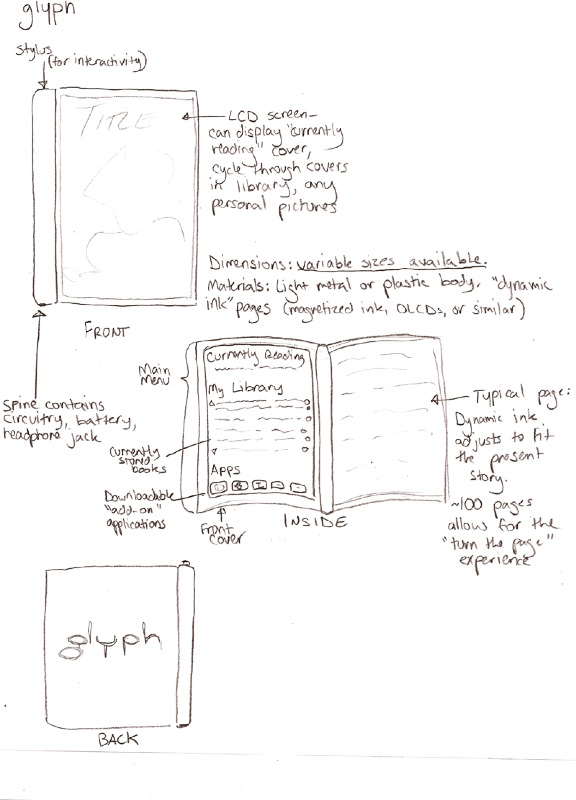 glyph
stylus
(for interactivity)
TITLE
LCD screen-
can display "currently
reading" cover,
cycle through covers
in library, any
personal pictures
Dimensions: variable sizes available.
Materials: Light metal or plastic body. "dynamic
ink" pages (magnetized ink, OLCDs, or similar)
FRONT
Spine contains
circuitry, battery,
headphone jack
Main
menu
Currently Reading
My Library
Apps
Currently
stored
books
Downloadable
"add-on"
applications
Front
cover
INSIDE
Typical page:
Dynamic ink
adjusts to fit
the present
story.
~100 pages
allows for the
"turn the page"
experience
glyph
BACK